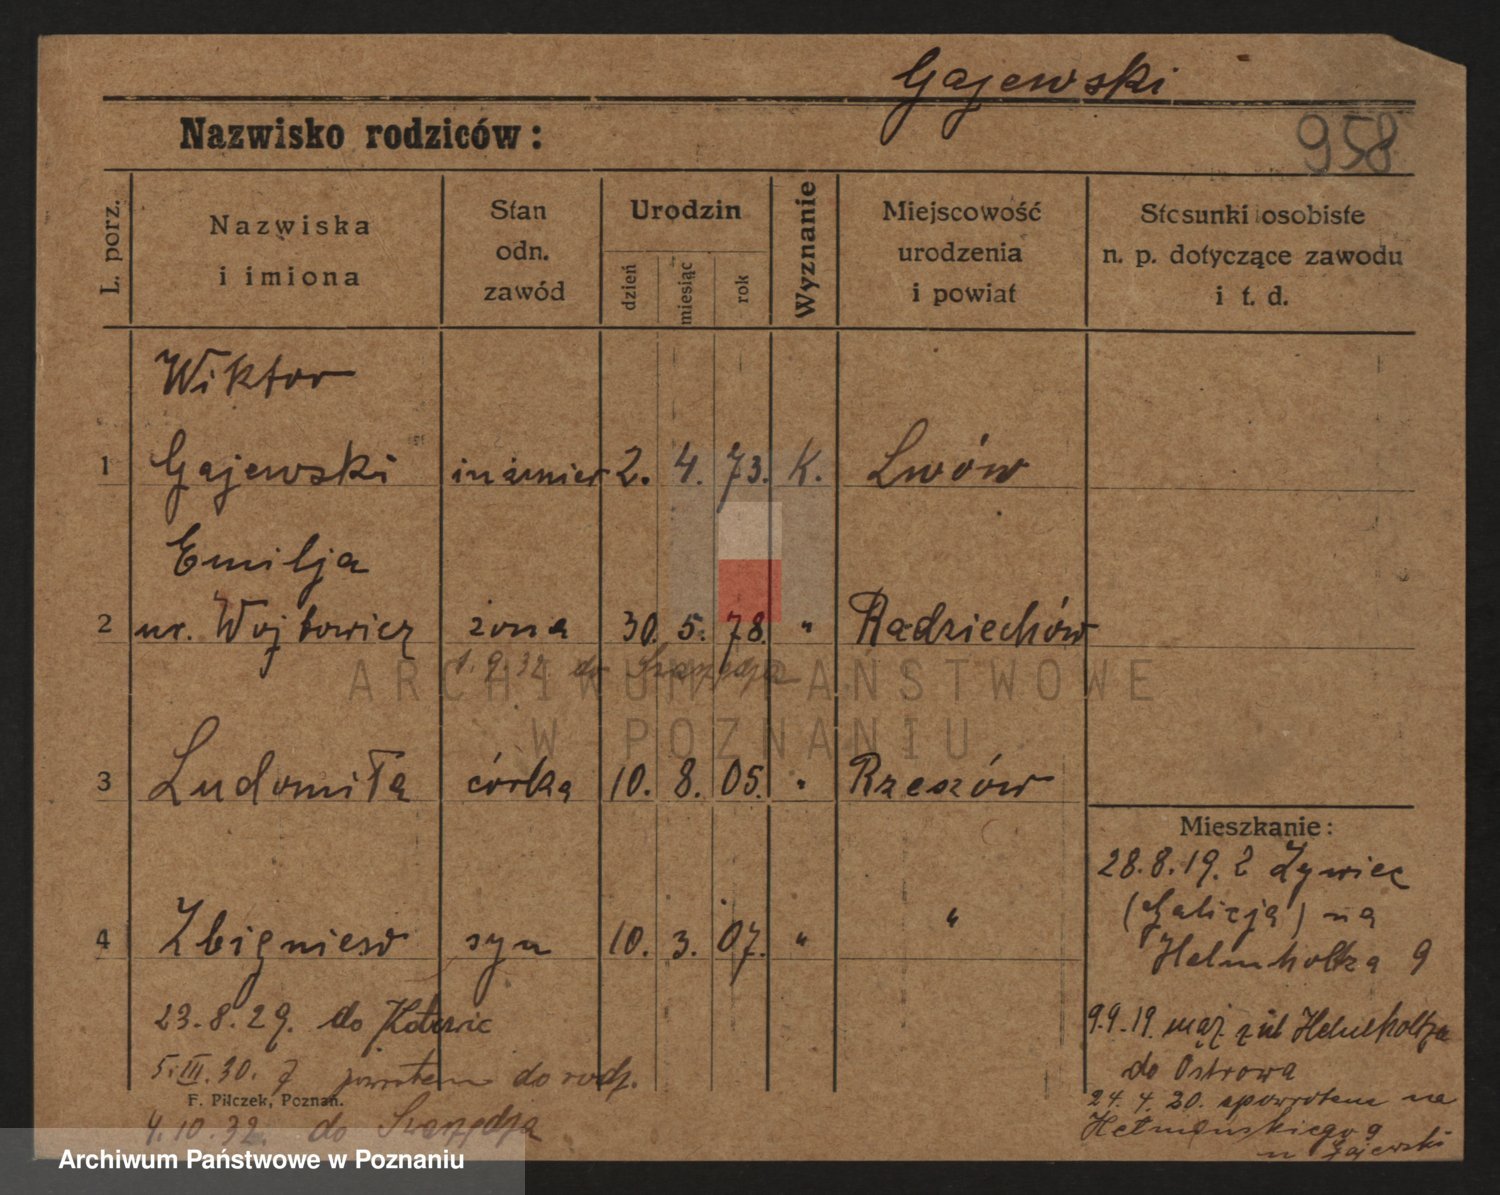 Gajewski
Nazwisko rodziców:
958
L. porz.
Nazwiska
i imiona
Stan
odn.
zawód
Urodzin
dzień
miesiąc
rok
Wyznanie
Miejscowość
urodzenia
i powiat
Stosunki osobiste
n. p. dotyczące zawodu
i t. d.
Wiktor
1 Gajewski inżynier 2. 4. 73. K. Lwów
Emilja
2 ur. Wojtowicz żona 30. 5. 78. " Radziechów
1.9.32 do Swarzędza
3 Ludomiła córka 10. 8. 05. " Rzeszów
4 Zbigniew syn 10. 3. 07. " "
23.8.29. do Katowic
5.III.30. z powrotem do rodz.
F. Pilczek, Poznań.
4.10.32. do Swarzędza
Mieszkanie:
28.8.19. z Żywiec
(Galicja) na
Helmholtza 9
9.9.19. mąż z ul Helmholtza
do Ostrowa
24.4.20. spowrotem na
Hetmańskiego 9
u Gajewski
ARCHIWUM PAŃSTWOWE
W POZNANIU
Archiwum Państwowe w Poznaniu